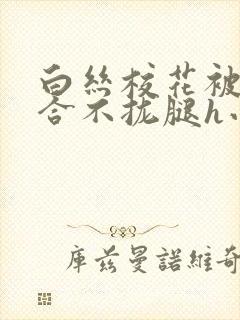 白丝校花被
合不拢腿h、
库兹曼諾維奇